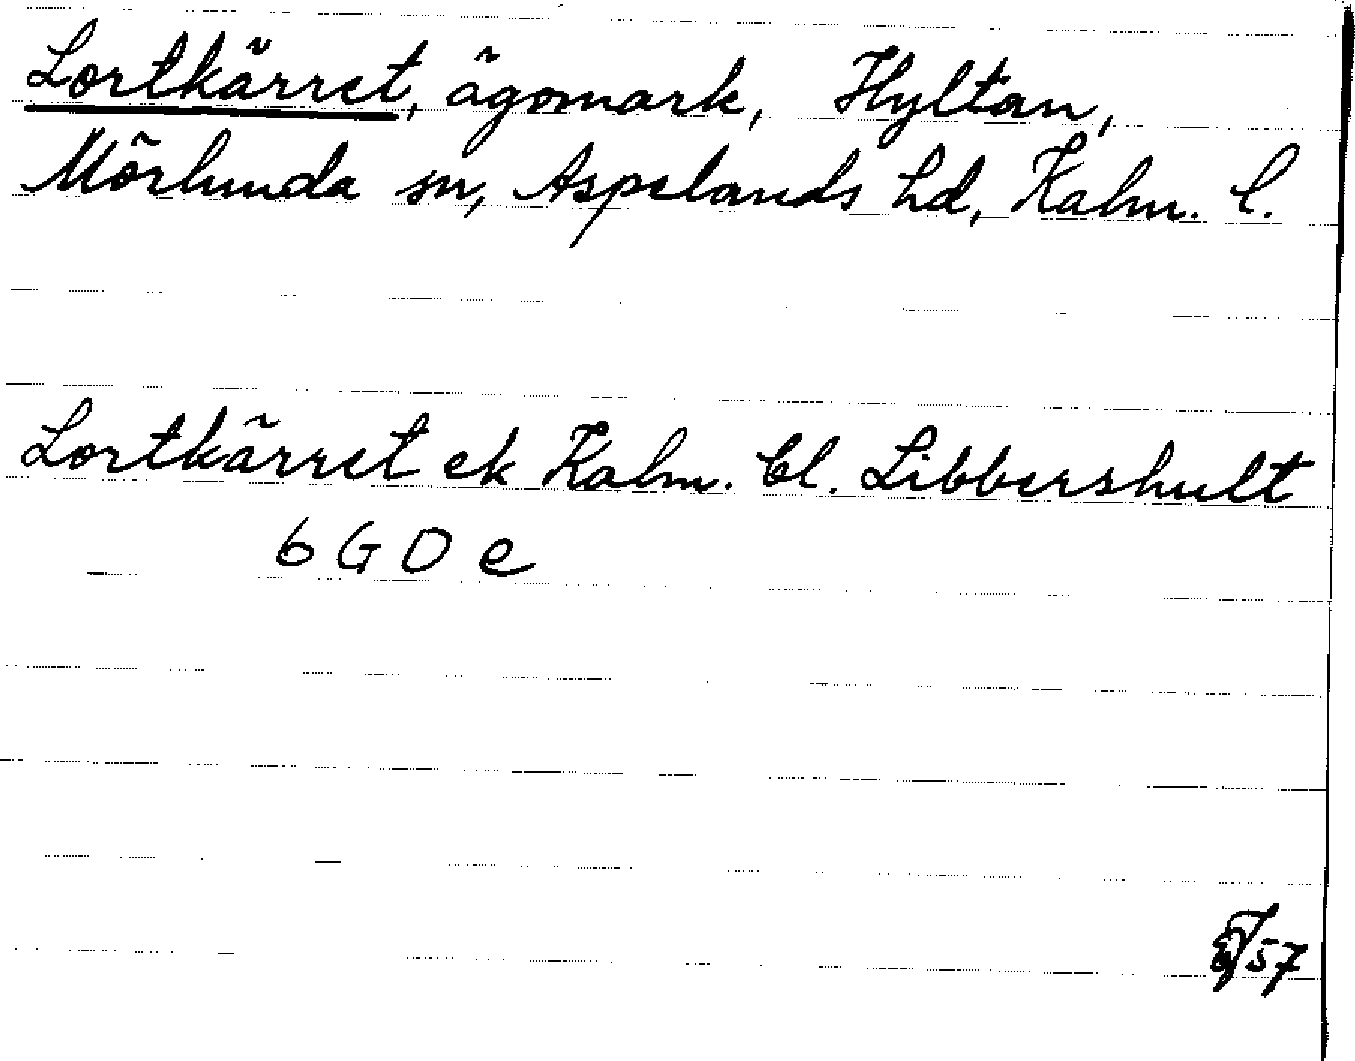 Lortkärret, ägomark, Hyltan,
Mörlunda sn, Aspelands hd, Kalm. l.
Lortkärret ek Kalm. bl. Libbershult
6 G D e
57